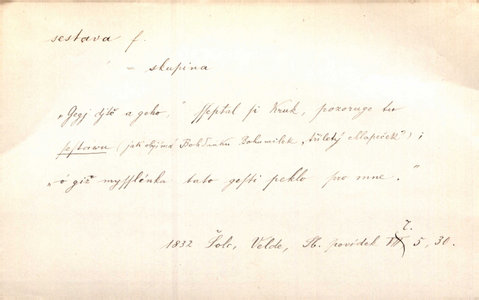 sestava f.
– skupina
„Gegj djtě a geho," sseptal si Kruk, pozoruge tu
sestawu (jak objímá Bohdanku Bohumilek, „tříletý chlapeček") i
„ó giž mysslénka tato gesti peklo pro mne."
1832 Šolc, Velde, Sb. povídek 7. 5, 30.